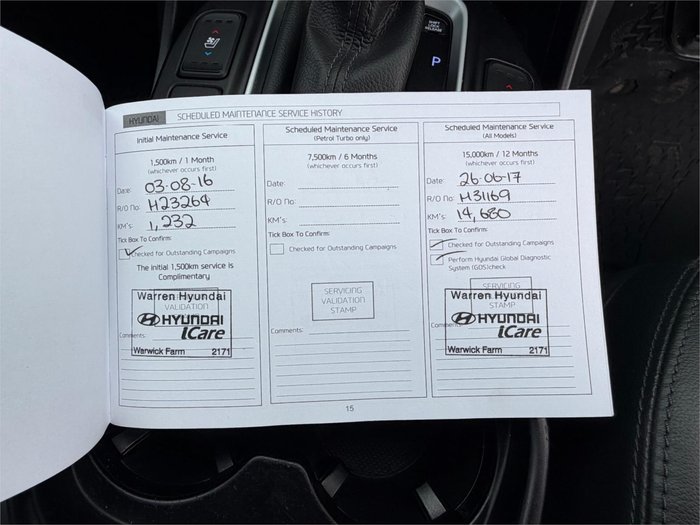 SHIFT LOCK RELEASE
P
HYUNDAI SCHEDULED MAINTENANCE SERVICE HISTORY
Initial Maintenance Service
1,500km / 1 Month
(whichever occurs first)
Date: 03-08-16
R/O No: H23264
KM's: 1,232
Tick Box To Confirm:
Checked for Outstanding Campaigns
The initial 1,500km service is
Complimentary
Warren Hyundai
VALIDATION
HYUNDAI
iCare
Comments:
Warwick Farm 2171
Scheduled Maintenance Service
(Petrol Turbo only)
7,500km / 6 Months
(whichever occurs first)
Date:
R/O No:
KM's:
Tick Box To Confirm:
Checked for Outstanding Campaigns
SERVICING
VALIDATION
STAMP
Comments:
Scheduled Maintenance Service
(All Models)
15,000km / 12 Months
(whichever occurs first)
Date: 26-06-17
R/O No: H31169
KM's: 14,680
Tick Box To Confirm:
Checked for Outstanding Campaigns
Perform Hyundai Global Diagnostic
System (GDS)check
SERVICING
Warren Hyundai
VALIDATION
HYUNDAI
iCare
Warwick Farm 2171
15